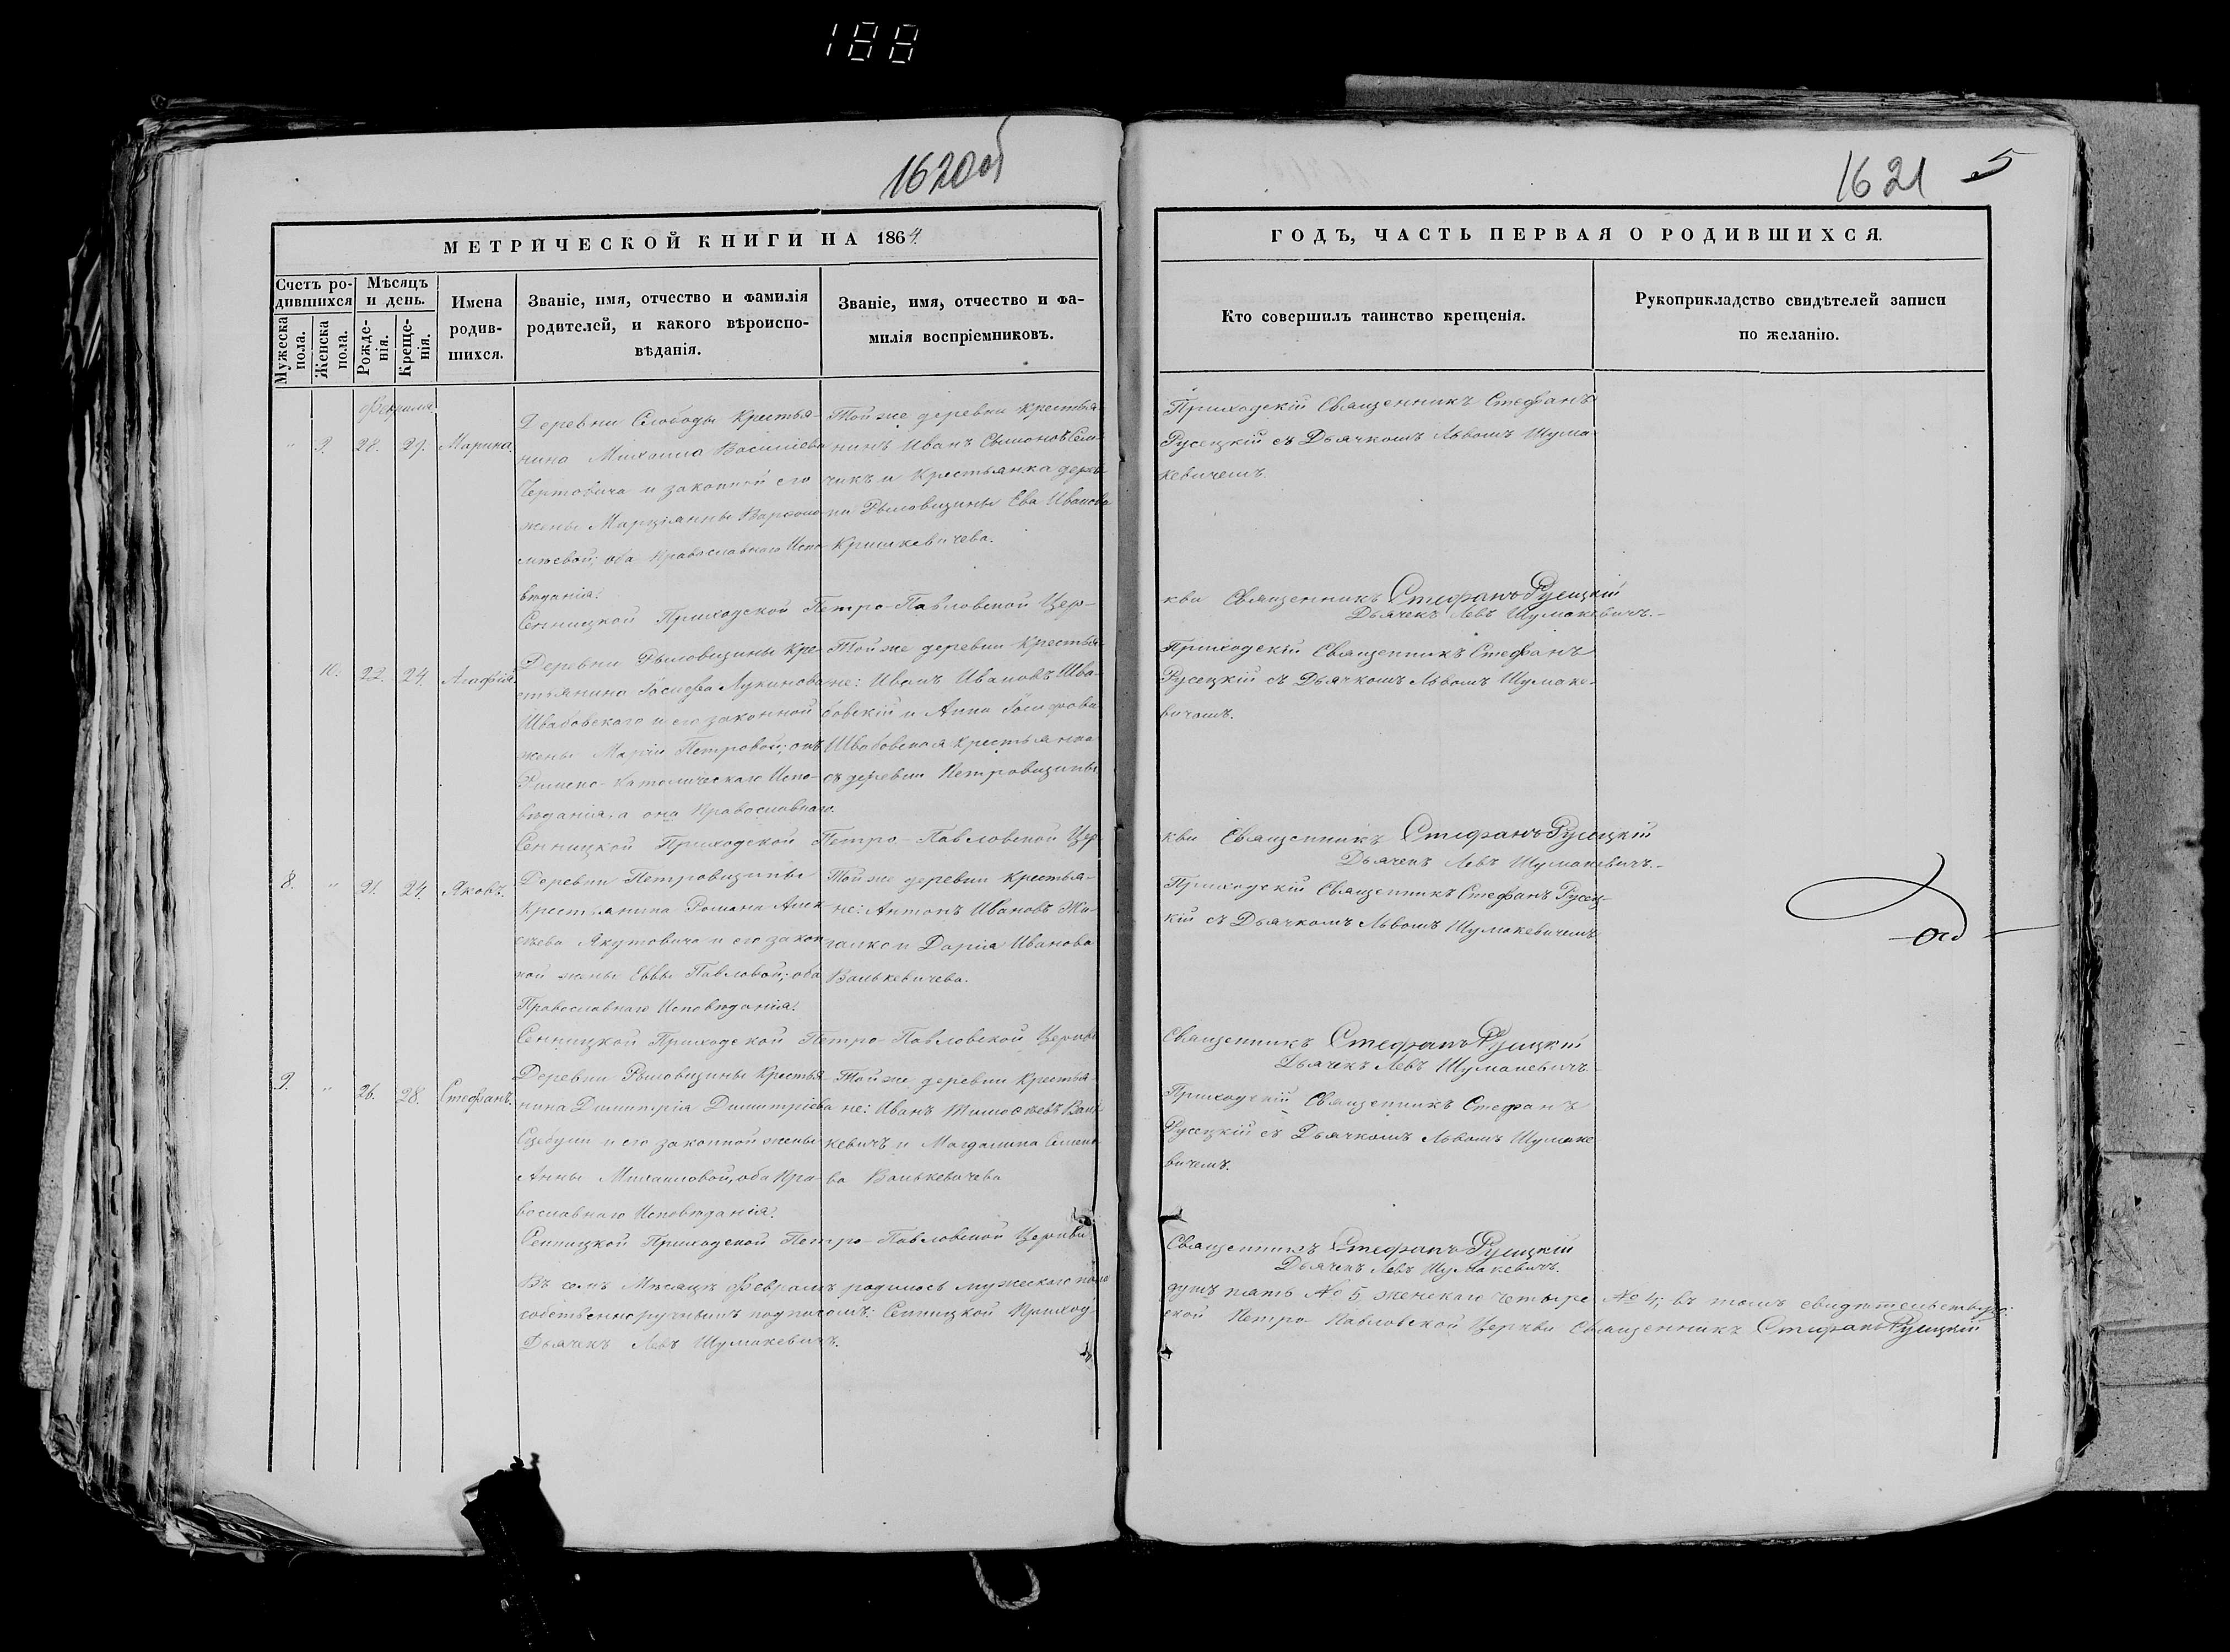 188
1620об
1621 5
МЕТРИЧЕСКОЙ КНИГИ НА 1864.
ГОДЪ, ЧАСТЬ ПЕРВАЯ О РОДИВШИХСЯ.
Счетъ родившихся
Мужеска пола.
Женска пола.
Мѣсяцъ и день.
Рожденія.
Крещенія.
Имена родившихся.
Званіе, имя, отчество и фамилія
родителей, и какого вѣроиспо-
вѣданія.
Званіе, имя, отчество и фа-
милія воспріемниковъ.
Кто совершилъ таинство крещенія.
Рукоприкладство свидѣтелей записи
по желанію.
Февраля
" 9. 28. 29. Марина.
Деревни Слободы Крестья-
нина Михаила Василіева
Чертовича и законной его
жены Марціянны Варфоло-
мѣевой; оба Православнаго Испо-
вѣданія.
Той же деревни крестья-
нинъ Иванъ Сѵмоновъ Сем-
чикъ и Крестьянка дерев-
ни Рымовщины Ева Иванова
Кришкевичева.
Приходскій Священникъ Стефанъ
Русецкій съ Дьячкомъ Львомъ Шума-
кевичемъ.
Сенницкой Приходской Петро-Павловской Цер-
кви Священникъ Стефанъ Русецкій
Дьячекъ Левъ Шумакевичъ.-
10. 22. 24. Агафія
Деревни Рымовщины Кре-
стьянина Іосифа Лукинова
Швабовскаго и его законной
жены Маріи Петровой; онъ
Римско-Католическаго Испо-
вѣданія, а она Православнаго.
Той же деревни Крестья-
не: Иванъ Ивановъ Шва-
бовскій и Анна Іосифова
Швабовская крестьянка
съ деревни Петровщины
Приходскій Священникъ Стефанъ
Русецкій съ Дьячкомъ Львомъ Шумаке-
вичомъ.
Сенницкой Приходской Петро-Павловской Цер-
кви Священникъ Стефанъ Русецкій
Дьячекъ Левъ Шумакевичъ.-
8. " 21. 24. Яковъ.
Деревни Петровщины
Крестьянина Романа Алек-
сѣева Якутовича и его закон-
ной жены Еввы Павловой; оба
Православнаго Исповѣданія.
Той же деревни Крестья-
не: Антонъ Ивановъ Жи-
галко и Дарія Иванова
Валькевичева.
Приходскій Священникъ Стефанъ Русец-
кій съ Дьячкомъ Львомъ Шумакевичемъ
Сенницкой Приходской Петро-Павловской Церкви
Священникъ Стефанъ Русецкій
Дьячекъ Левъ Шумакевичъ.
9. " 26. 28. Стефанъ.
Деревни Рымовщины Крестья-
нина Димитрія Димитріева
и его законной жены
Анны Михаиловой, оба Пра-
вославнаго Исповѣданія.
Той же деревни Крестья-
не: Иванъ Валь-
кевичъ и Магдалина Семено-
ва Валькевичева
Приходскій Священникъ Стефанъ
Русецкій съ Дьячкомъ Львомъ Шумаке
вичемъ.
Сенницкой Приходской Петро-Павловской Церкви
Священникъ Стефанъ Русецкій
Дьячекъ Левъ Шумакевичъ.
Въ семъ Мѣсяцѣ Февралѣ родилось мужескаго пола душъ пять № 5, женскаго четыре № 4; въ томъ свидѣтельствуемъ
собственноручнымъ подписомъ: Сенницкой Приходской Петро-Павловской Церкви Священникъ Стефанъ Русецкій
Дьячекъ Левъ Шумакевичъ.